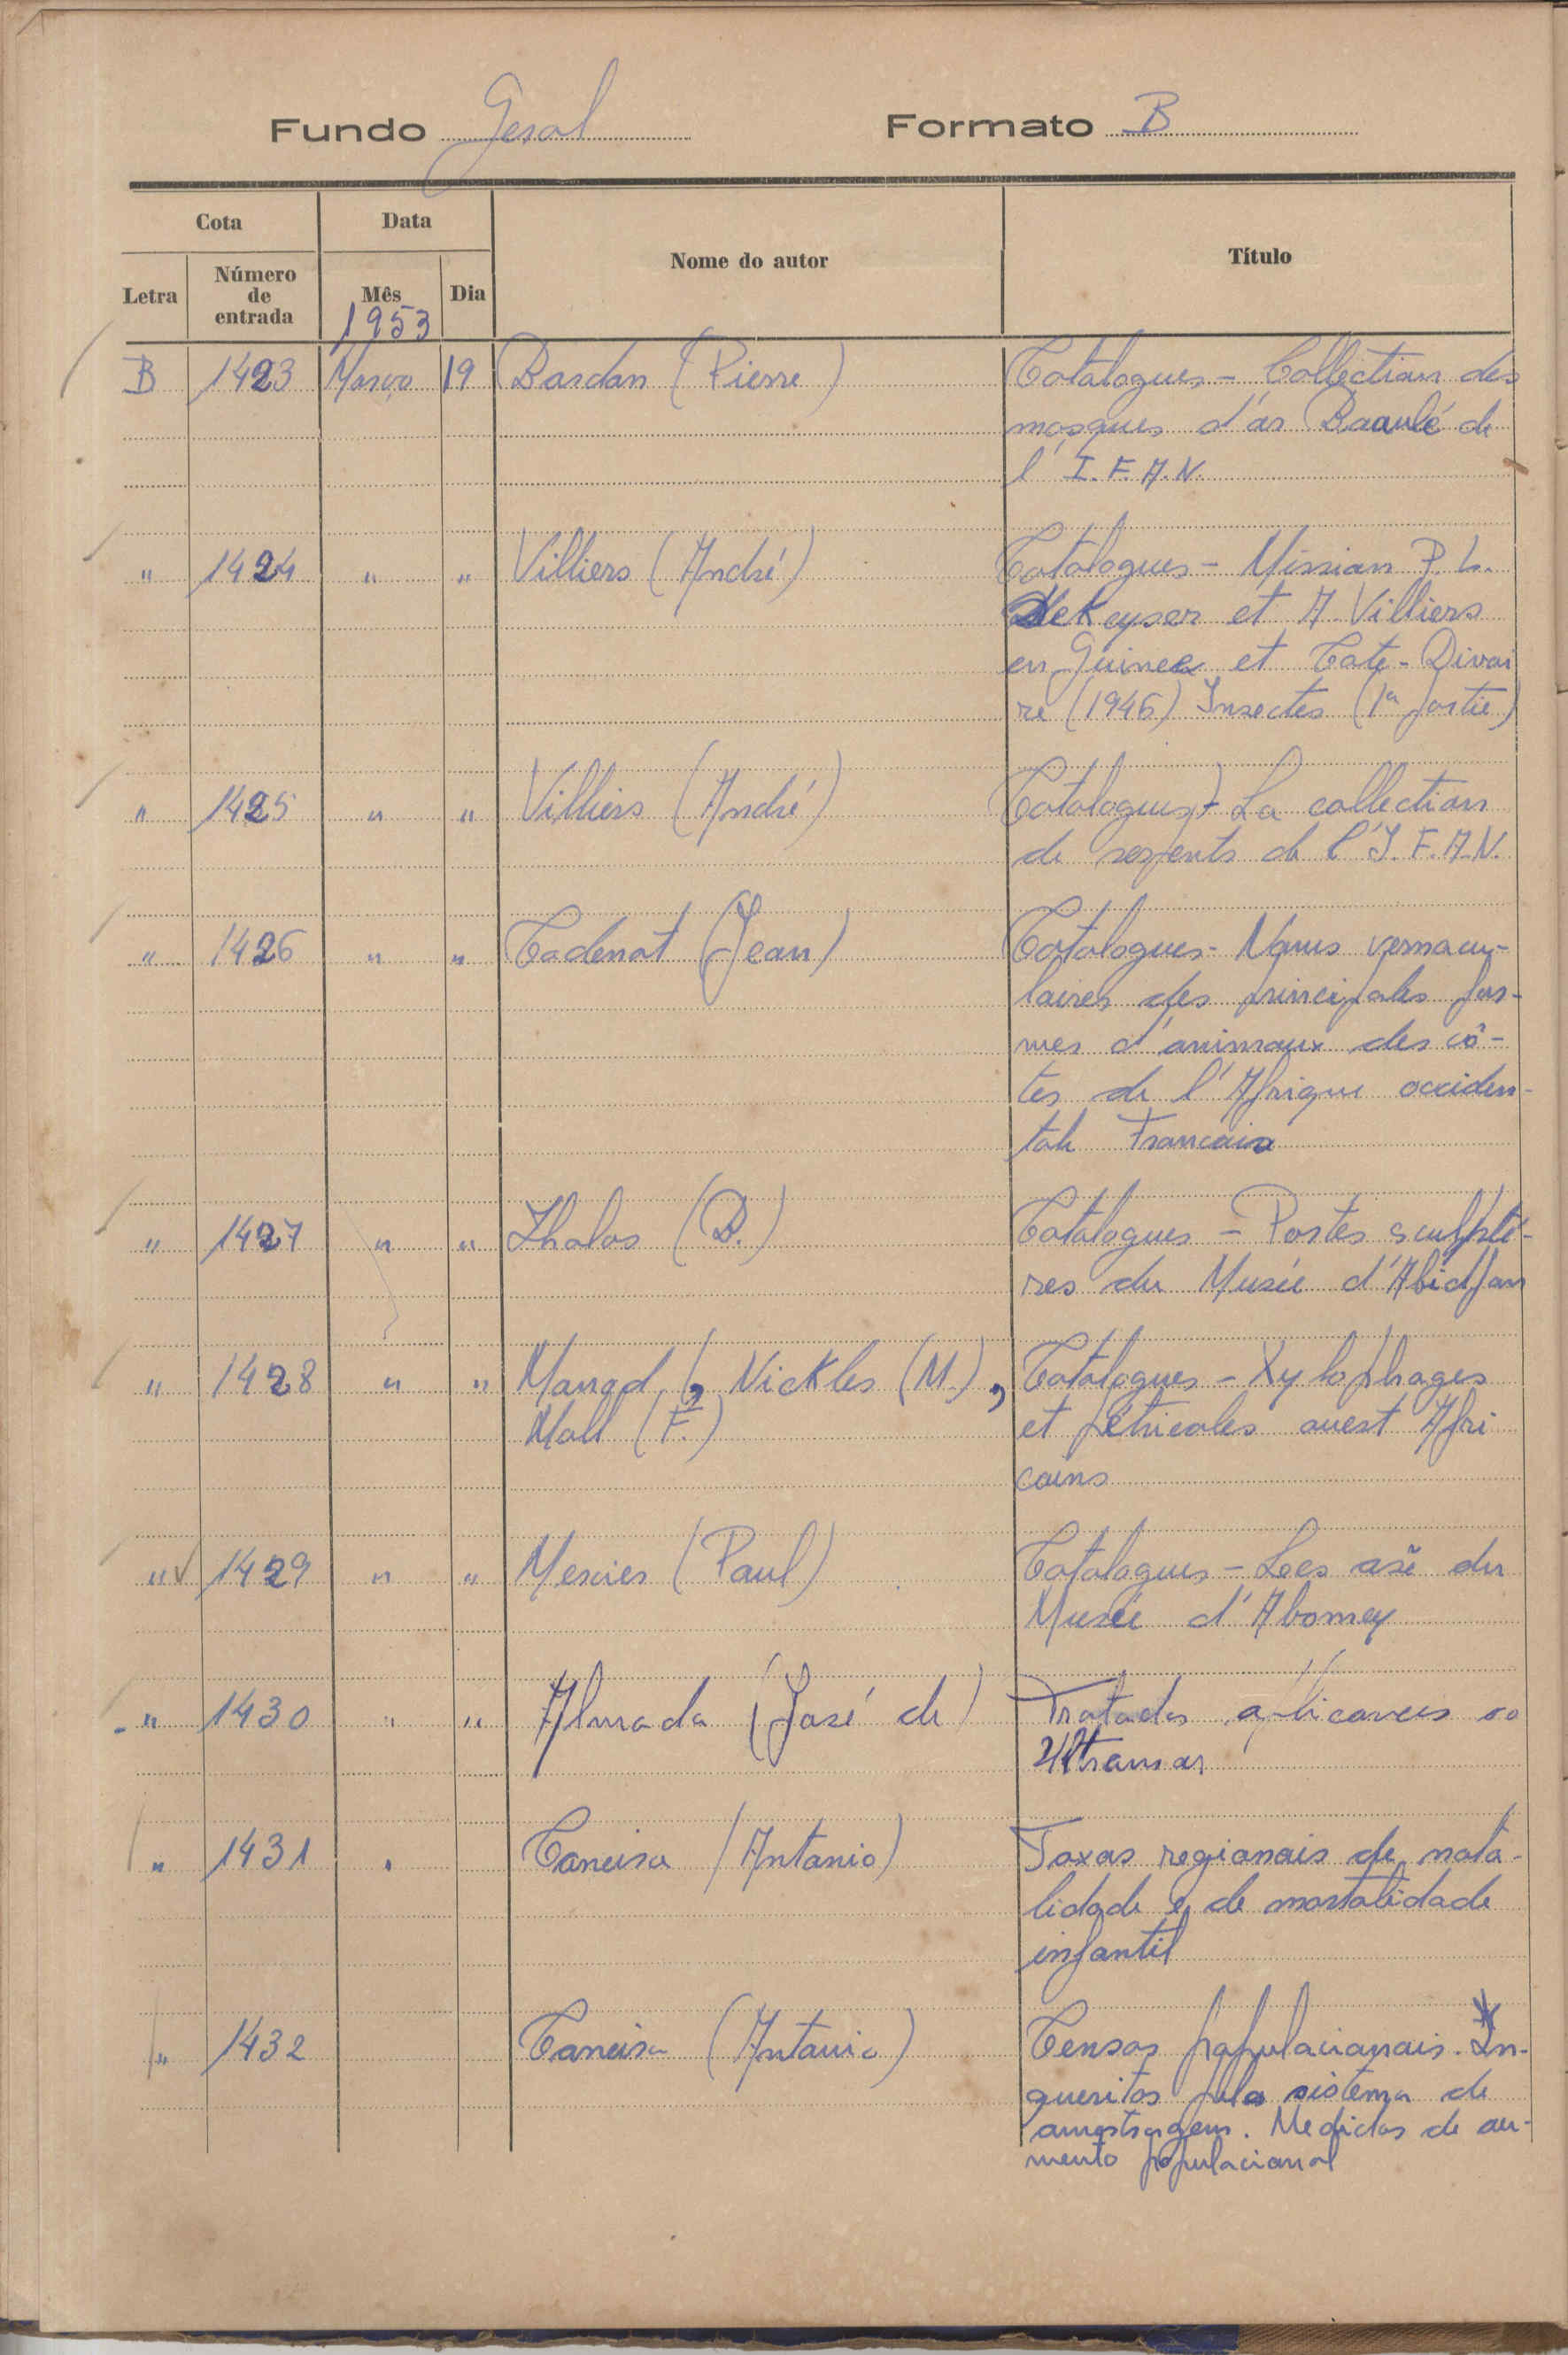 Fundo Geral Formato B
Cota Data Nome do autor Título
Letra Número de entrada Mês Dia
1953
B 1423 Março 19 Bardon (Pierre) Catalogues - Collection des
masques d'or Baoulé de
l'I.F.A.N.
" 1424 " " Villiers (André) Catalogues - Mission P. L.
Dekeyser et A Villiers
en Guinee et Cote-Divoi
re (1946) Insectes (1ª partie)
" 1425 " " Villiers (André) Catalogues - La collection
de serpents de l'I.F.A.N.
" 1426 " " Cadenat (Jean) Catalogues - Noms vernacu-
laires des principales for-
mes d'animaux des cô-
tes de l'Afrique occiden-
tale Francais
" 1427 " " Holas (B.) Catalogues - Portes sculpté-
res du Musée d'Abidjan
" 1428 " " Nickles (M.), Catalogues - Xylophages
(F.) et pétricoles ouest Afri
cains
" 1429 " " (Paul) Catalogues - Les asẽ du
Musée d'Abomey
" 1430 " " Almada (José de) Tratados aplicaveis ao
Ultramar
" 1431 " (Antonio) Taxas regionais de nata-
lidade e de mortalidade
infantil
" 1432 (Antonio) Censos populacionais. In-
queritos pelo sistema de
amostragem. Medidas de au-
mento populacional